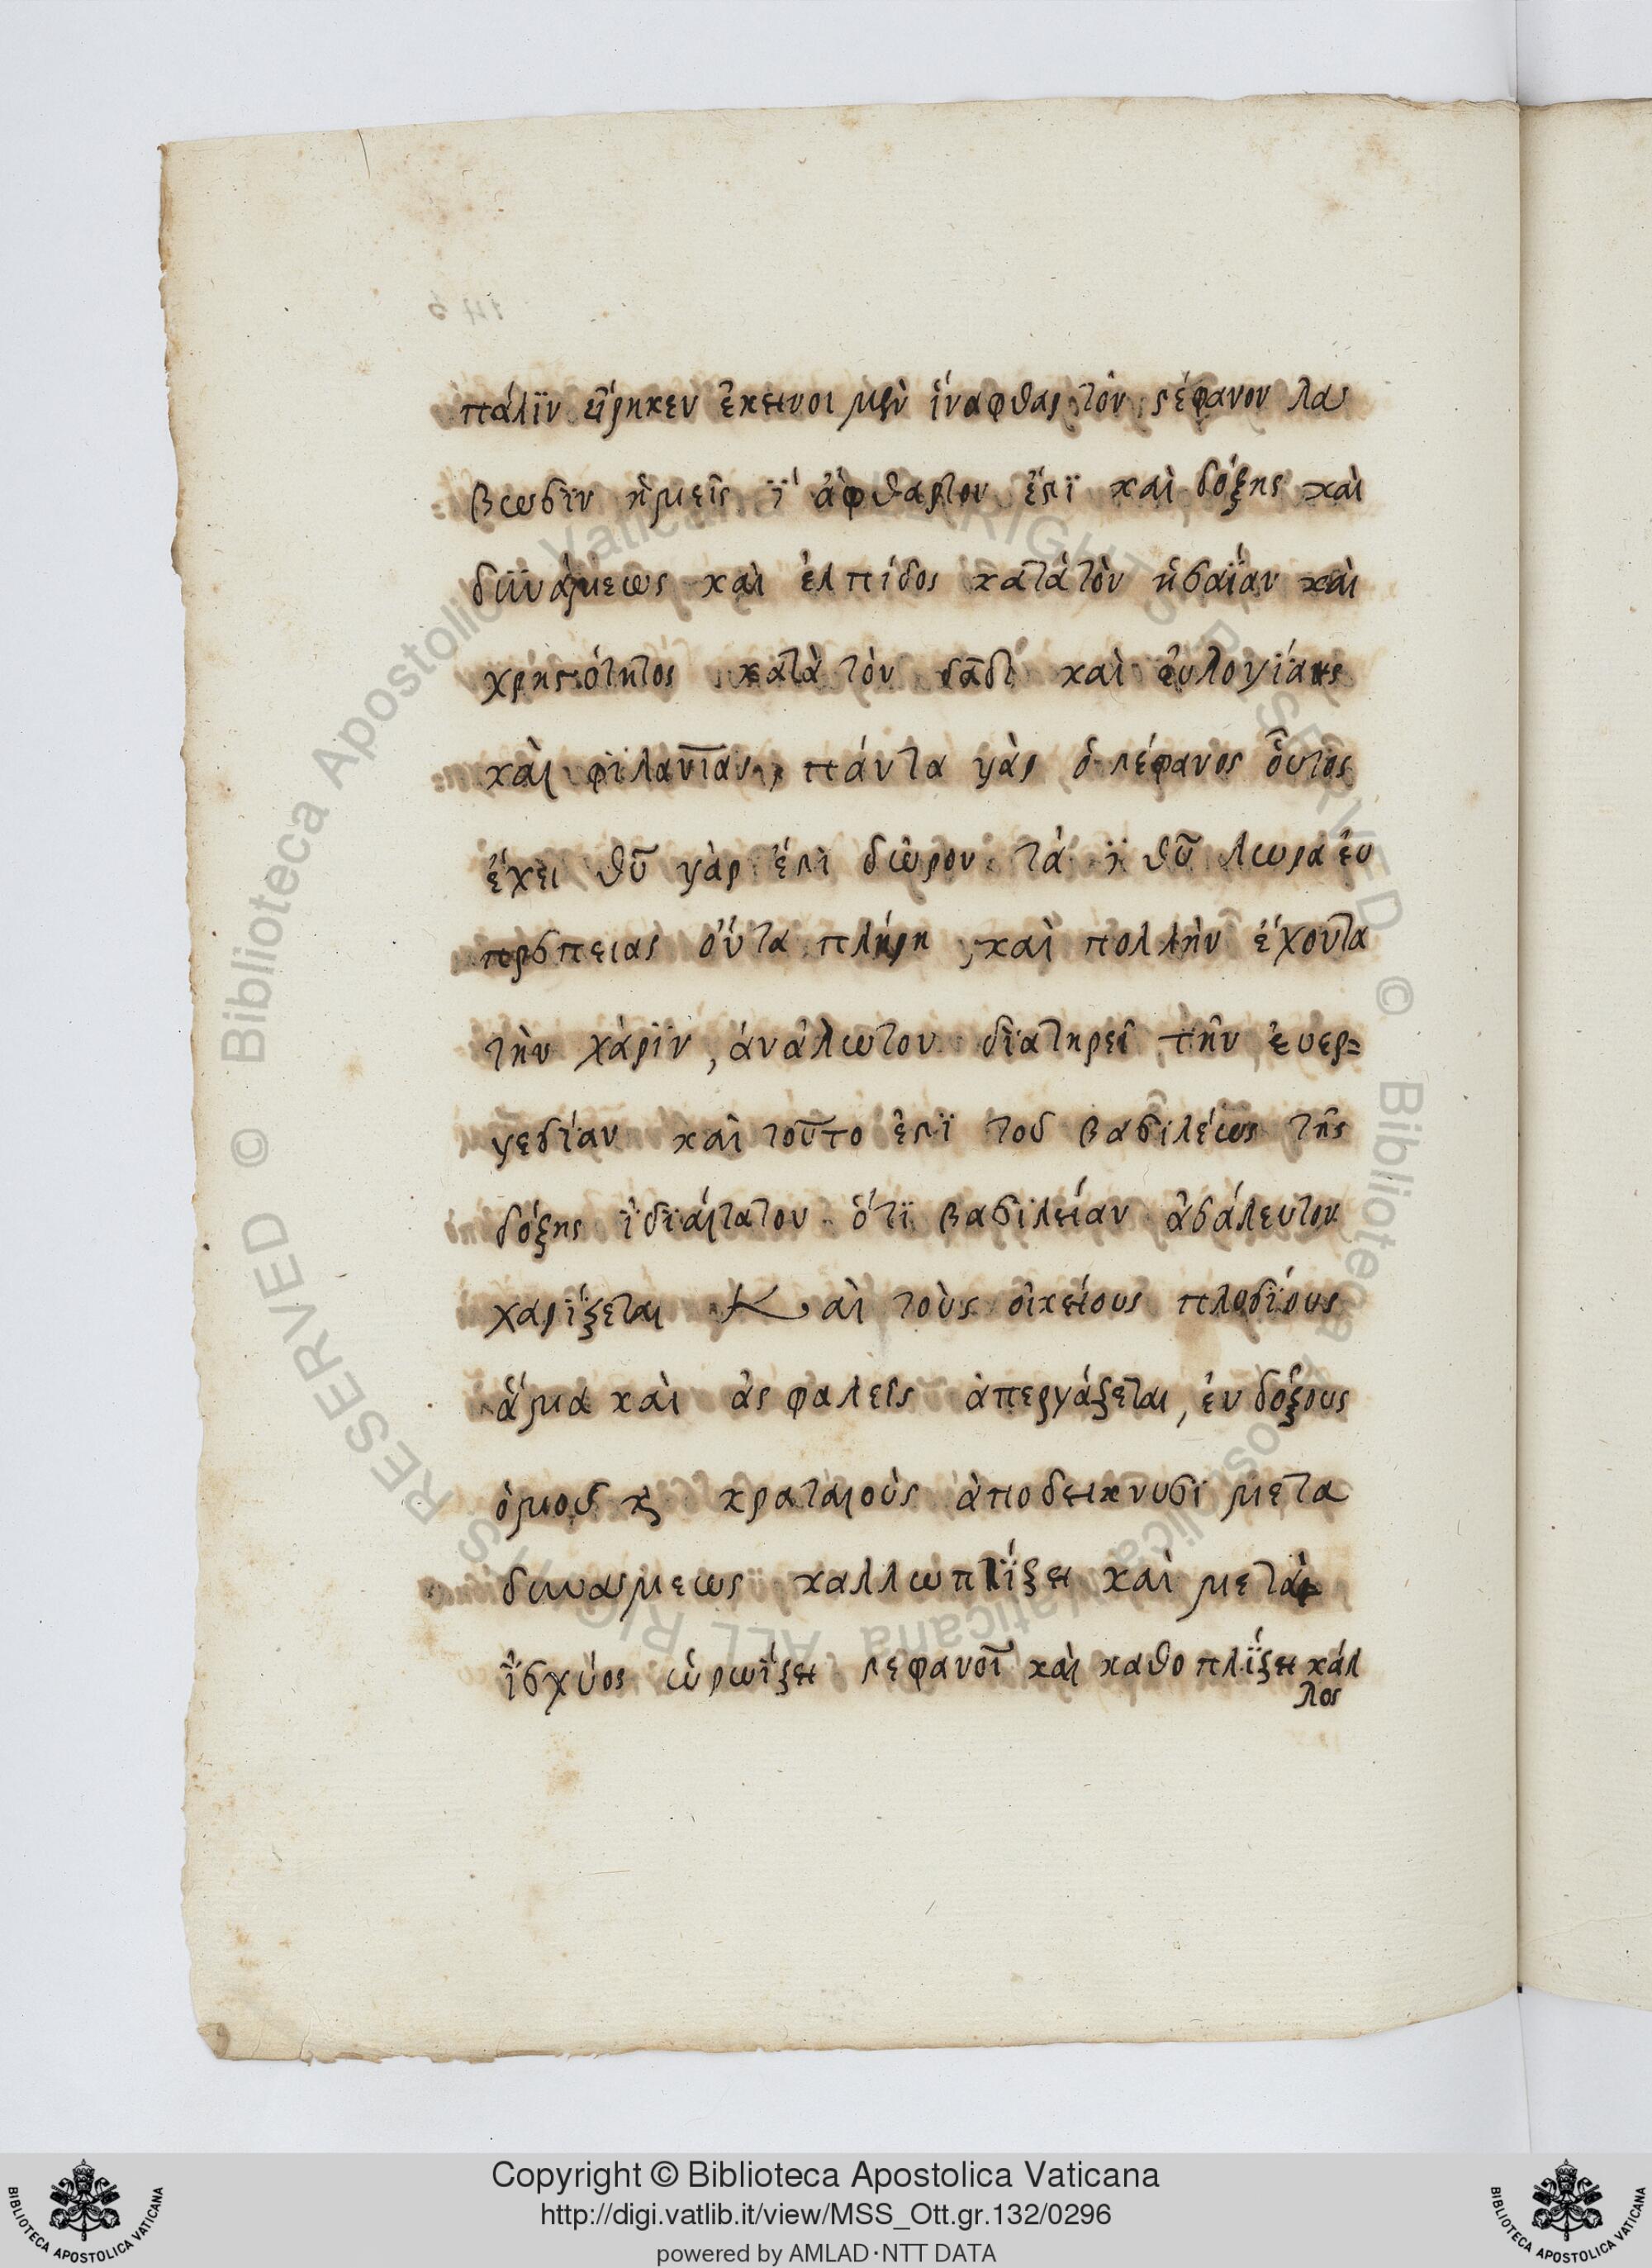 πάλϊν εἴρηκεν ἐκεινοι μὲν ἵναφθαρτὸν στέφανον λα
βωσϊν ἡμεῖς ἄφθαρτον ἐστϊ καὶ δόξης καὶ
δυνάμεως καὶ ἐλπίδος κατὰτὸν ἡσαΐαν καὶ
χρηστότητος κατὰ τὸν δᾱδ καὶ ἐυλογίας
καὶ φϊλανῑαν, πάντα γὰρ ὁ στέφανος οὗτος
ἔχει θῡ γὰρ ἐστὶ δῶρον τὰ θῡ δωρα ἐυ
πρεπειας ὄντα πλήρη, καὶ πολλὴν ἔχοντα
τὴν χάρϊν, ἀνάλωτον διατηρεῖ τὴν ἐυερ=
γεσίαν καὶ τοῦτο ἐστϊ τοῦ βασιλέως τῆς
δόξης ἰδϊάιτατον ὅτϊ βασιλείαν ἀσάλευτον
χαρίζεται Καὶ τοὺς οἰκείους πλοσίους
ἅμα καὶ ἀς φαλεῖς ἀπεργάζεται, ἐν δόξους
ὁμοῦ κ̀ κραταιοὺς ἀποδεικνυσι μετα
δυναμεως καλλωπίζει καὶ μετὰ
ἰσχύος ὡρωίζει στεφανοῖ καὶ καθοπλίζει κάλ
λος
Copyright © Biblioteca Apostolica Vaticana
http://digi.vatlib.it/view/MSS_Ott.gr.132/0296
powered by AMLAD·NTT DATA
BIBLIOTECA APOSTOLICA VATICANA
BIBLIOTECA APOSTOLICA VATICANA